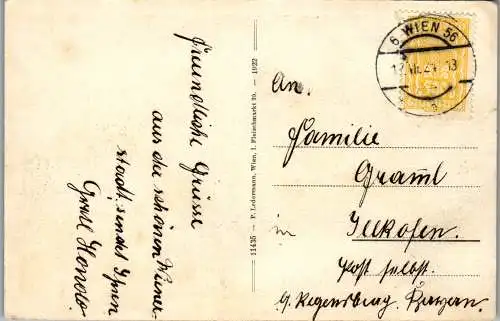 Freundliche Grüsse
aus der schönen Wiener-
stadt sendet Ihnen
Gretl
11435 - P. Ledermann, Wien, I. Fleischmarkt 20. - 1922
6 WIEN 56
An
Familie
Graml
in Illkofen.
Post selbst.
b. Regensburg. Bayern.